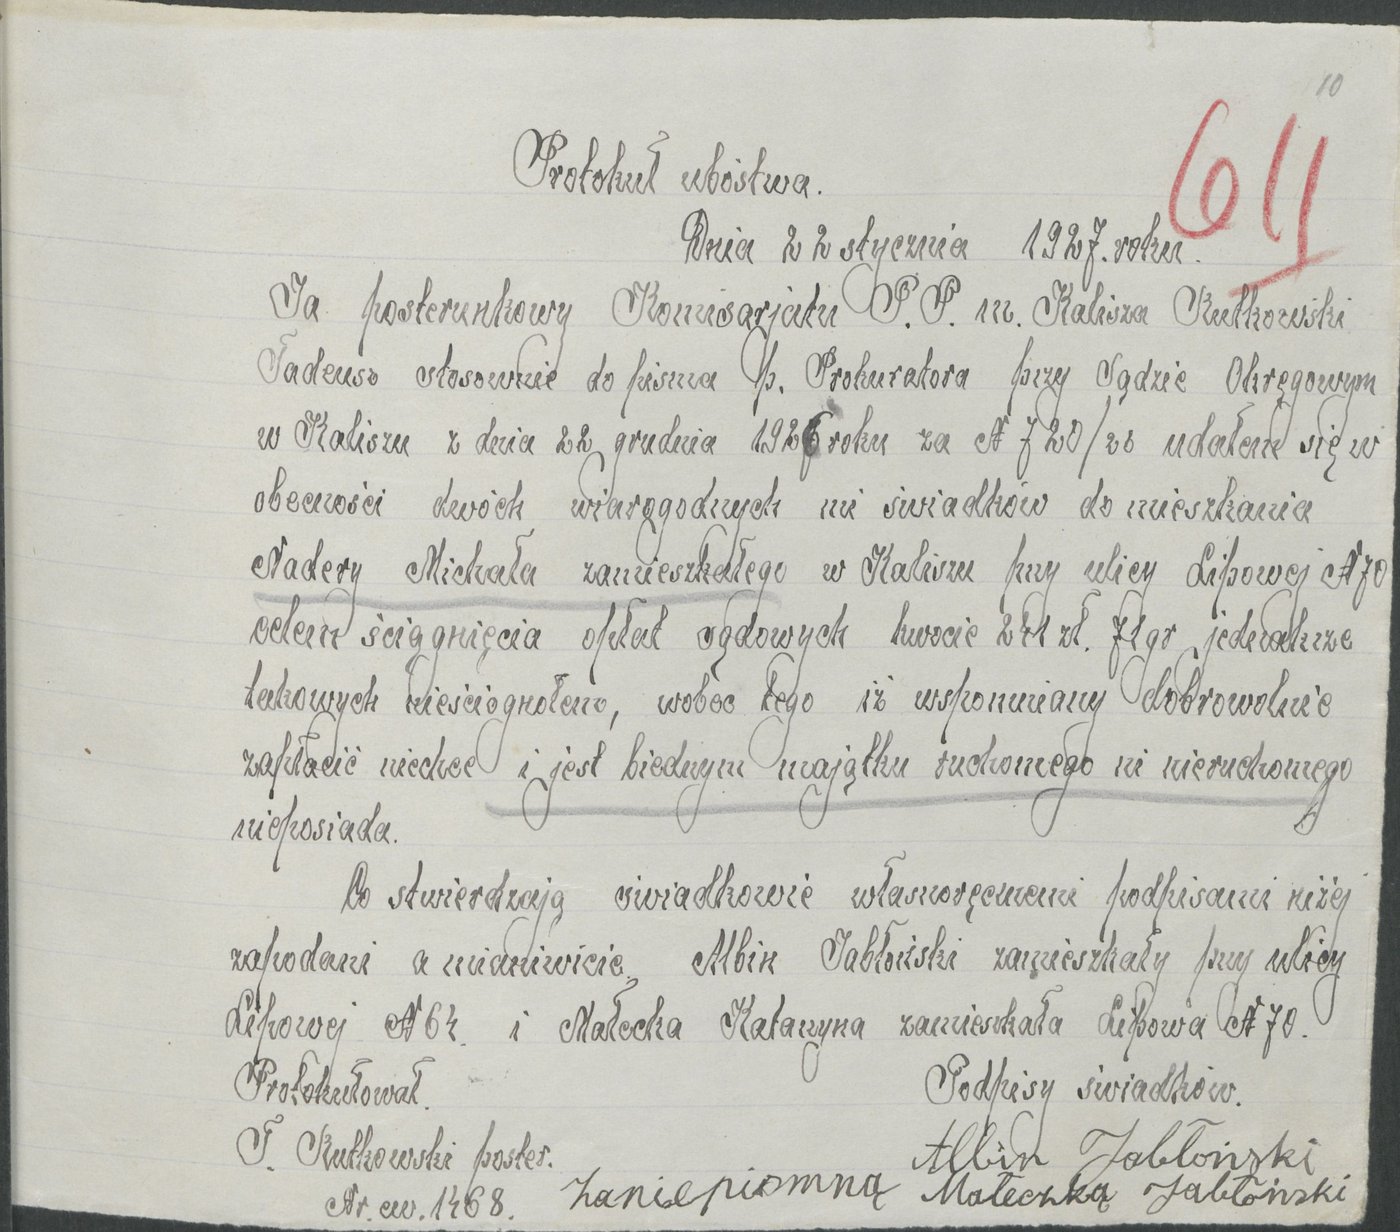 10
611
Protokuł ubóstwa.
Dnia 22 stycznia 1927. roku.
Ja posterunkowy Komisarjatu P. P. m. Kalisza Rutkowski
Tadeusz stosownie do pisma p. Prokuratora przy Sądzie Okręgowym
w Kaliszu z dnia 22 grudnia 1926 roku za N 720/26 udałem się w
obecności dwóch wiarogodnych mi świadków do mieszkania
Nadery Michała zamieszkałego w Kaliszu przy ulicy Lipowej N 70
celem ściągnięcia opłat sądowych kwocie zł. 71 gr jednakże
takowych nieściognołem, wobec tego iż wspomniany dobrowolnie
zapłacić niechce i jest biednym majątku ruchomego ni nieruchomego
nieposiada.
Co stwierdzają świadkowie własnoręcznemi podpisami niżej
zapodani a mianiwicie, Albin Jabłoński zamieszkały przy ulicy
Lipowej N 64. i Małecka Katarzyna zamieszkała Lipowa N 70.
Protokułował. Podpisy świadków.
T. Rutkowski poster. Albin Jabłoński
Nr. ew. 1468. zaniepiomną Małeczką Jabłoński